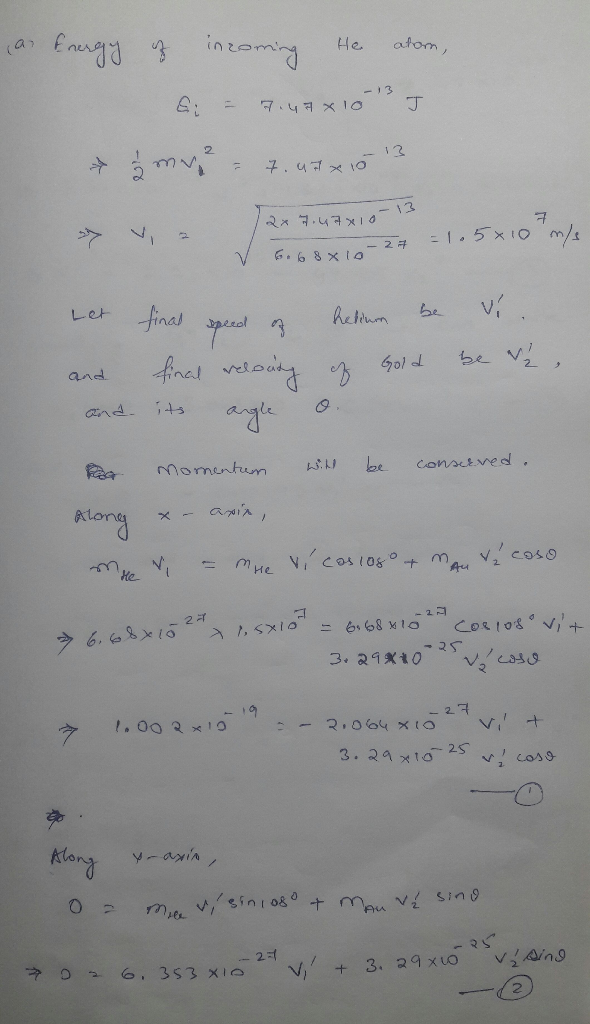 (a) Energy of incoming He atom,
Ei = 7.47 × 10^-13 J
⇒ 1/2 mv₁² = 7.47 × 10^-13
⇒ v₁ = √(2 × 7.47 × 10^-13 / 6.68 × 10^-27) = 1.5 × 10^7 m/s
Let final speed of helium be v₁′.
and final velocity of Gold be v₂′,
and its angle θ.
Momentum will be conserved.
Along x-axis,
m_He v₁ = m_He v₁′ cos108° + m_Au v₂′ cosθ
⇒ 6.68 × 10^-27 × 1.5 × 10^7 = 6.68 × 10^-27 cos108° v₁′ +
3.29 × 10^-25 v₂′ cosθ
⇒ 1.002 × 10^-19 = - 2.064 × 10^-27 v₁′ +
3.29 × 10^-25 v₂′ cosθ
— ①
Along y-axis,
0 = m_He v₁′ sin108° + m_Au v₂′ sinθ
⇒ 0 = 6.353 × 10^-27 v₁′ + 3.29 × 10^-25 v₂′ sinθ
— ②